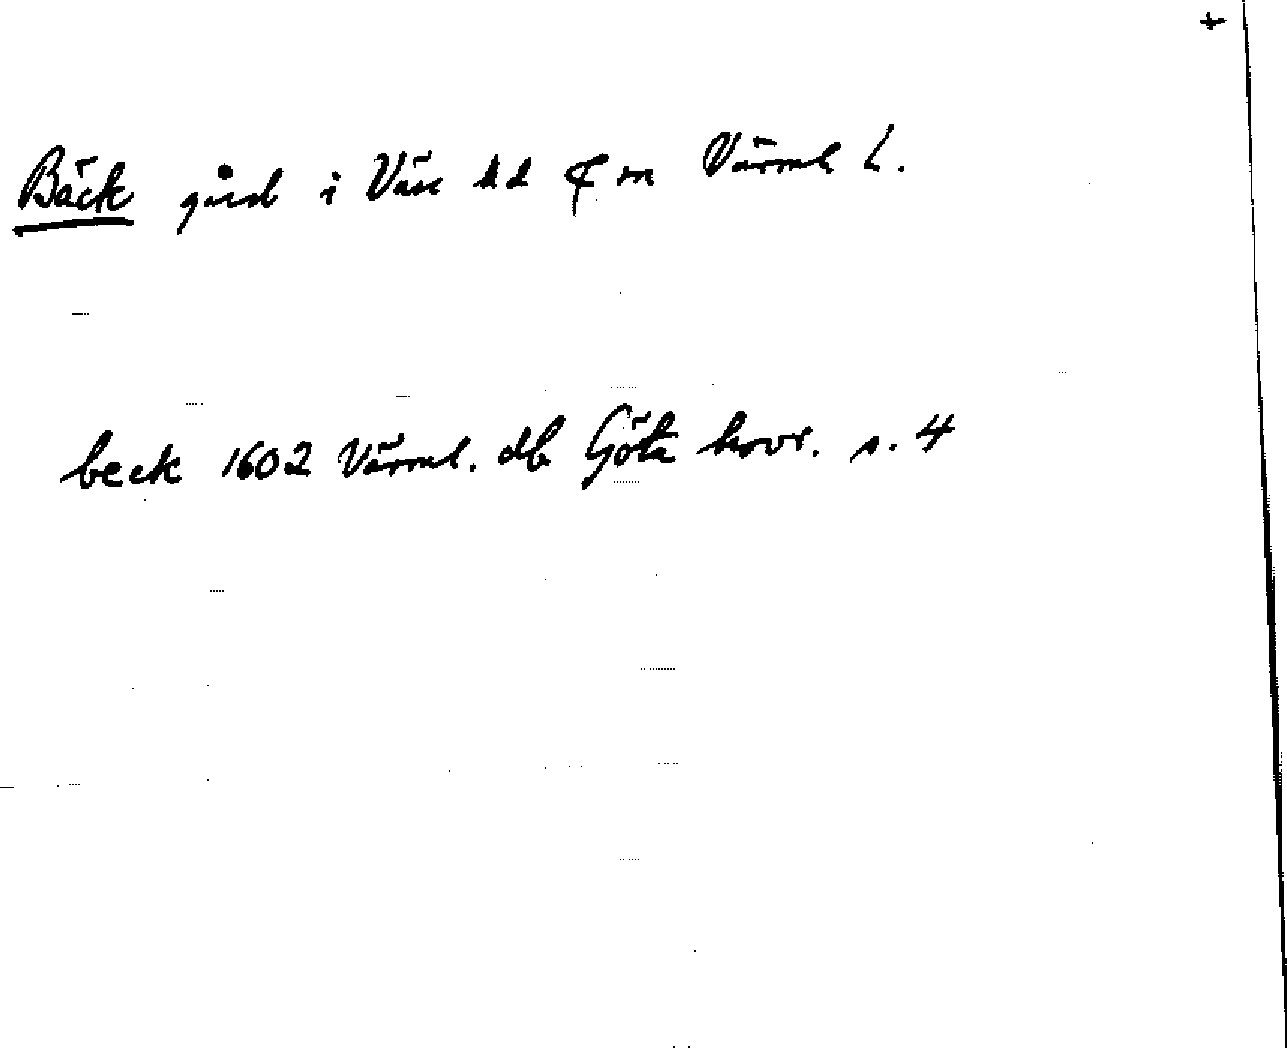 +
Bäck gård i Väse hd Värml L.
beck 1602 Värml. db Göta hovr. s. 4